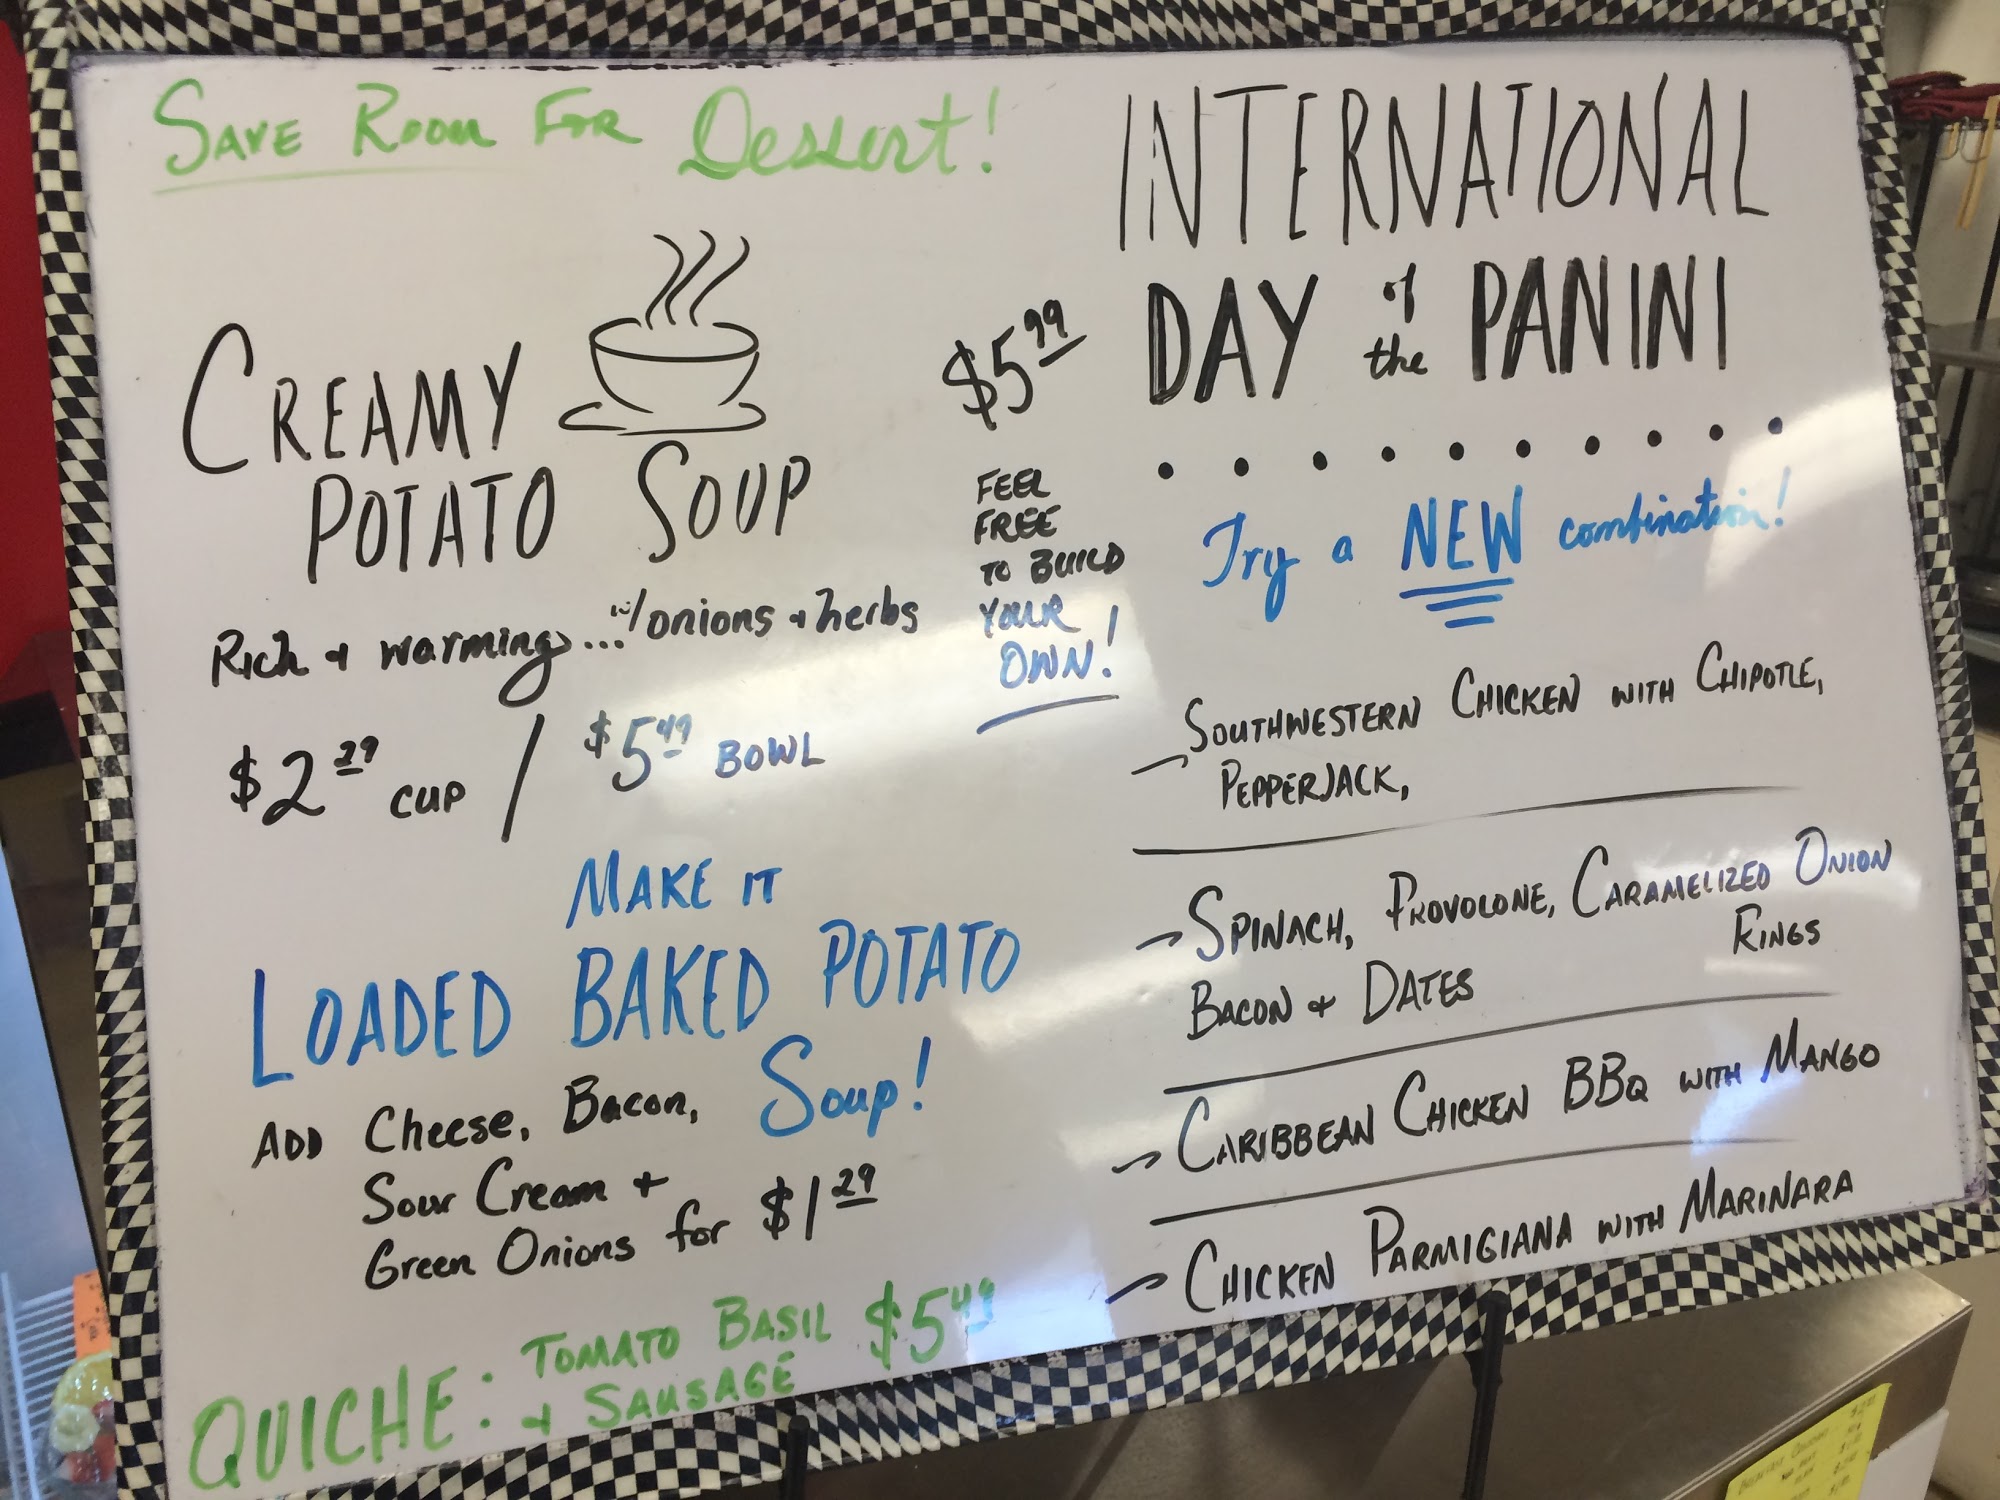 SAVE ROOM FOR Dessert!
CREAMY
POTATO SOUP
Rich + warming... w/onions + herbs
$2.29 CUP / $5.49 BOWL
MAKE IT
LOADED BAKED POTATO
Soup!
ADD Cheese, Bacon,
Sour Cream +
Green Onions for $1.29
QUICHE: TOMATO BASIL $5.49
+ SAUSAGE
$5.99
FEEL
FREE
TO BUILD
YOUR
OWN!
INTERNATIONAL
DAY of the PANINI
Try a NEW combination!
SOUTHWESTERN CHICKEN WITH CHIPOTLE,
PEPPERJACK,
SPINACH, PROVOLONE, CARAMELIZED ONION
RINGS
BACON + DATES
CARIBBEAN CHICKEN BBQ WITH MANGO
CHICKEN PARMIGIANA WITH MARINARA